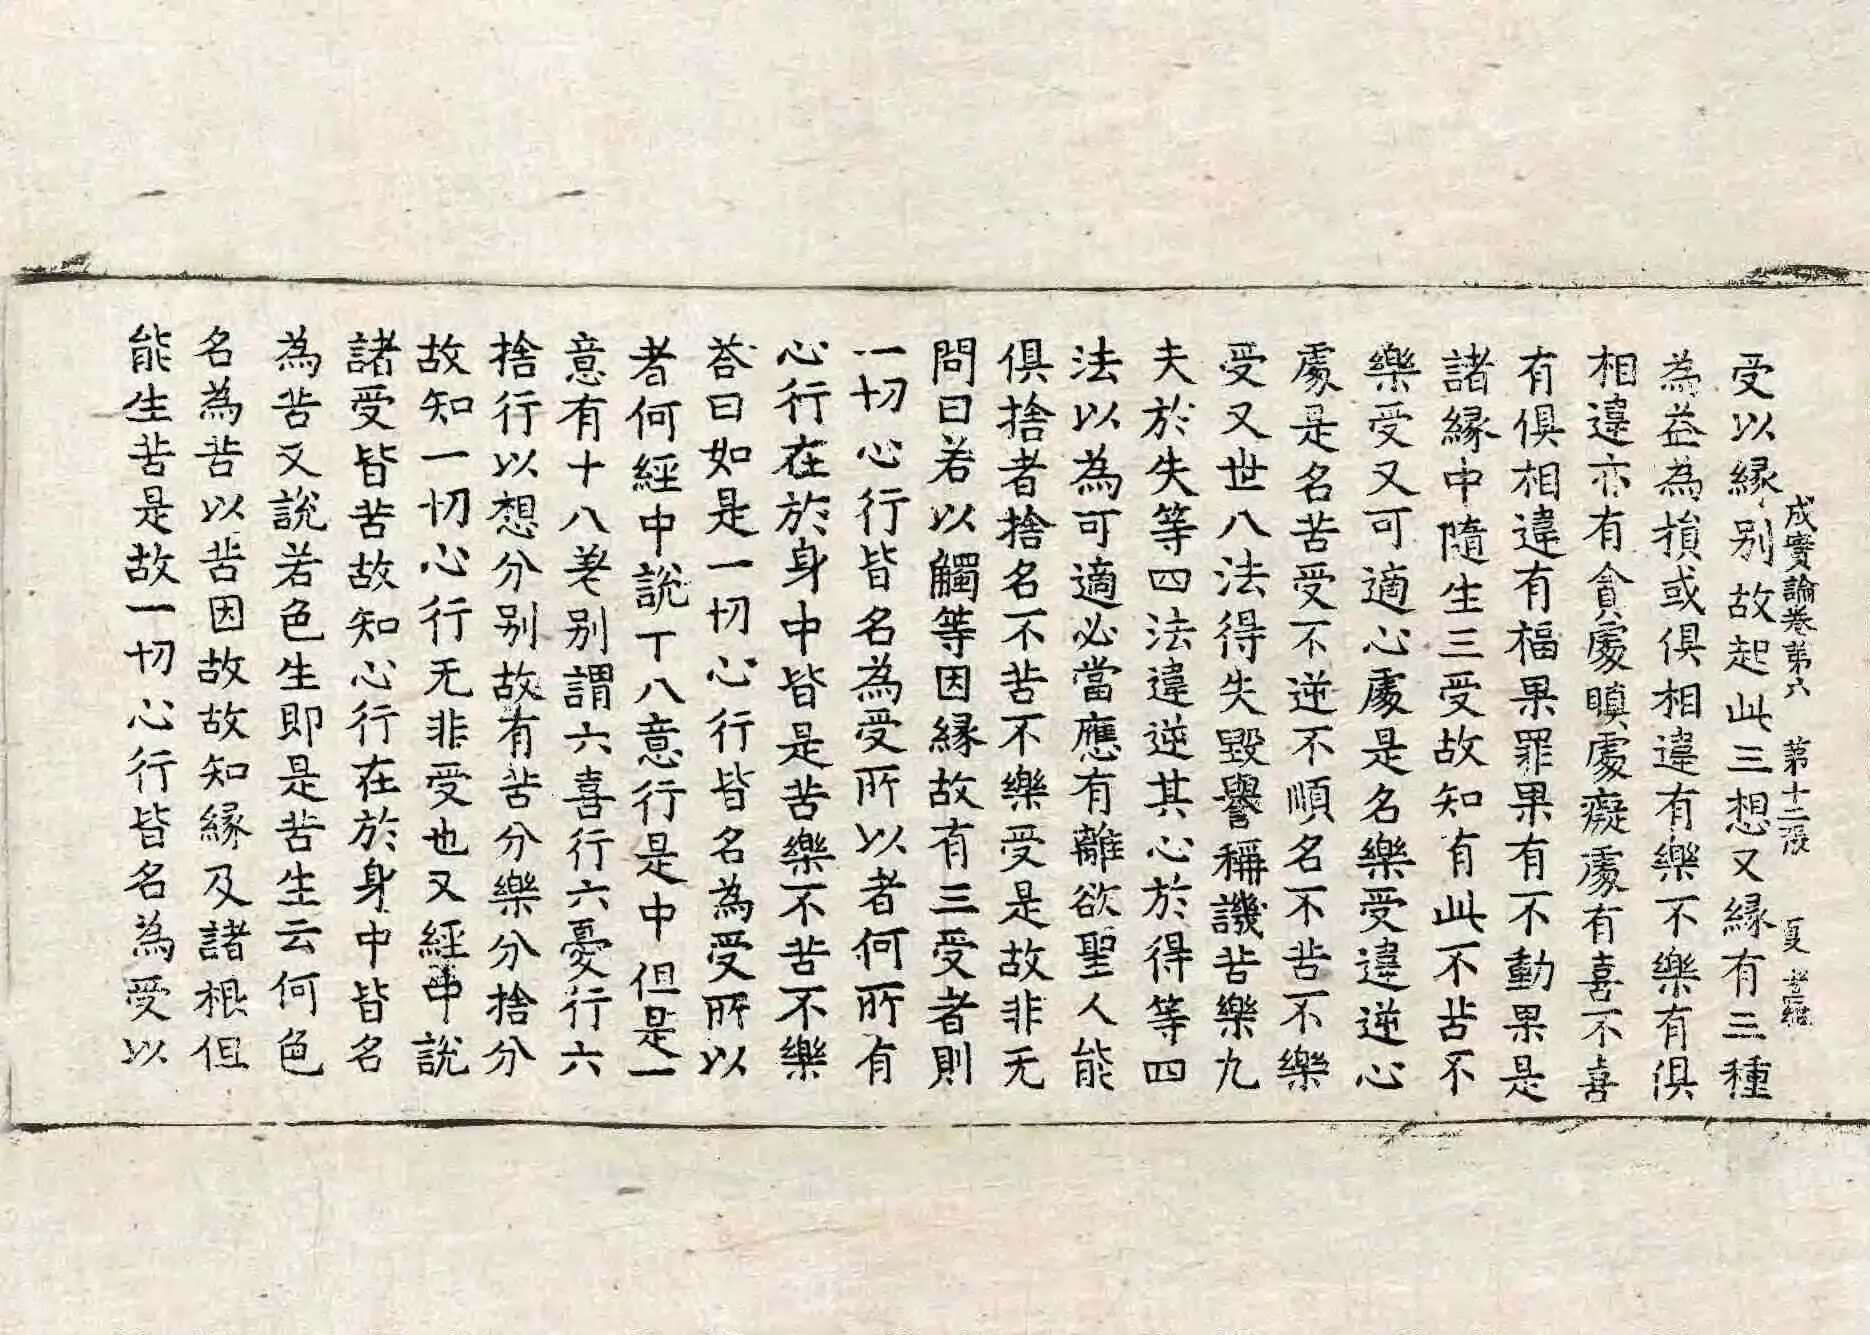 受以縁別故起此三想又縁有三種
成實論卷第六 第十二張 夏
為益為損或俱相違有樂不樂有俱
相違亦有貪處瞋處癡處有喜不喜
有俱相違有福果罪果有不動果是
諸縁中隨生三受故知有此不苦不
樂受又可適心處是名樂受違逆心
處是名苦受不逆不順名不苦不樂
受又世八法得失毀譽稱譏苦樂九
夫於失等四法違逆其心於得等四
法以為可適必當應有離欲聖人能
俱捨者捨名不苦不樂受是故非无
問曰若以觸等因縁故有三受者則
一切心行皆名為受所以者何所有
心行在於身中皆是苦樂不苦不樂
荅曰如是一切心行皆名為受所以
者何經中說丁八意行是中但是一
意有十八差別謂六喜行六憂行六
捨行以想分別故有苦分樂分捨分
故知一切心行无非受也又經中說
諸受皆苦故知心行在於身中皆名
為苦又說若色生即是苦生云何色
名為苦以苦因故故知縁及諸根但
能生苦是故一切心行皆名為受以